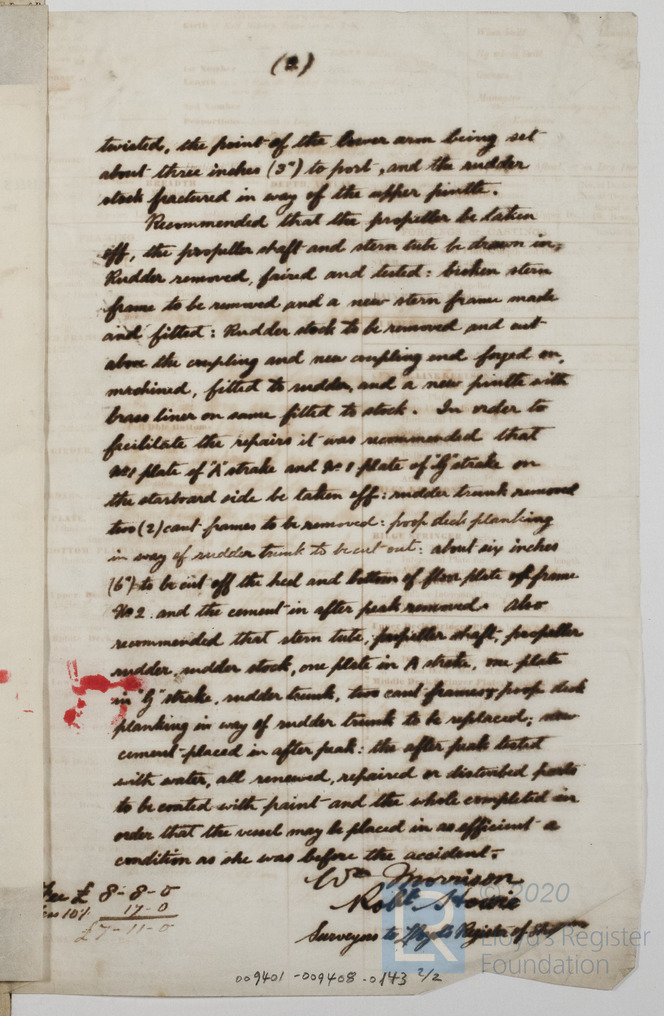 (2)
twisted, the point of the lower arm being set
about three inches (3") to port, and the rudder
stock fractured in way of the upper pintle.
Recommended that the propeller be taken
off, the propeller shaft and stern tube be drawn in;
Rudder removed, faired and tested: broken stern
frame to be removed and a new stern frame made
and fitted: Rudder stock to be removed and cut
above the coupling and new coupling end forged on,
machined, fitted to rudder, and a new pintle with
brass liner on same fitted to stock. In order to
facilitate the repairs it was recommended that
No 1 plate of "A" strake and No 1 plate of "G" strake on
the starboard side be taken off: rudder trunk removed
two (2) cant frames to be removed: poop deck planking
in way of rudder trunk to be cut out: about six inches
(6") to be cut off the heel and bottom of floor plate of frame
No 2. and the cement in after peak removed. Also
recommended that stern tube, propeller shaft, propeller
rudder, rudder stock, one plate in A strake, one plate
in "G" strake, rudder trunk, two cant frames & poop deck
planking in way of rudder trunk to be replaced; new
cement placed in after peak: the after peak tested
with water, all renewed, repaired or disturbed parts
to be coated with paint and the whole completed in
order that the vessel may be placed in as efficient a
condition as she was before the accident.
Wm Morrison
Robt Howie
Surveyors to Lloyd's Register of
Fee £ 8-8-0
10%. 17-0
£7-11-0
009401-009408-0143 2/2
© 2020
LR
Lloyd's Register
Foundation